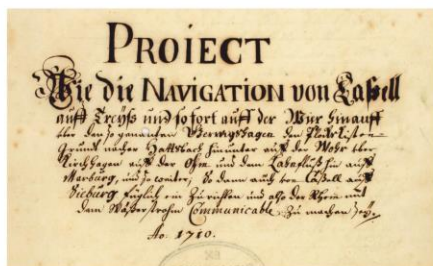 PROIECT
Wie die NAVIGATION von Caßell
auff Treyß und so fort auff der Wür hinauff
über den so genannten den
Grund nacher Hattsbach hinunter auff der Wohr über
Kirchhagen auff der Ohm und dem Lahnfluß hin auff
Marburg, und so weiter, So dann auch von Caßell auff
füglich ein Zu richten und also der Rhein mit
dem Communicable Zu machen seÿ.
Ao. 1710.